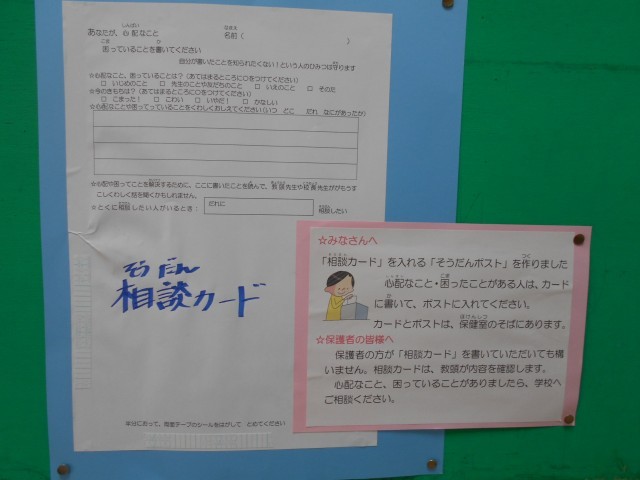 あなたが、心配なこと
困っていることを書いてください
名前(　　　)
自分が書いたことを知られたくない！という人のひみつは守ります
☆心配なこと、困っていることは？(あてはまるところに〇をつけてください)
□ いじめのこと □ 先生のことや友だちのこと □ いえのこと □ そのた
☆今のきもちは？(あてはまるところに〇をつけてください)
□ こまった！ □ こわい □ いやだ！ □ かなしい
☆心配なことや困ってっていることをくわしくおしえてください(いつ どこ だれ なにがあったか)
☆心配や困ってことを解決するために、ここに書いたことを読んで、教頭先生や校長先生ががもうす
こしくわしく話を聞くかもしれません。
☆とくに相談したい人がいるとき：
だれに
相談したい
そうだん
相談カード
半分におって、両面テープのシールをはがして とめてください
☆みなさんへ
「相談カード」を入れる「そうだんポスト」を作りました
心配なこと・困ったことがある人は、カード
に書いて、ポストに入れてください。
カードとポストは、保健室のそばにあります。
☆保護者の皆様へ
保護者の方が「相談カード」を書いていただいても構
いません。相談カードは、教頭が内容を確認します。
心配なこと、困っていることがありましたら、学校へ
ご相談ください。